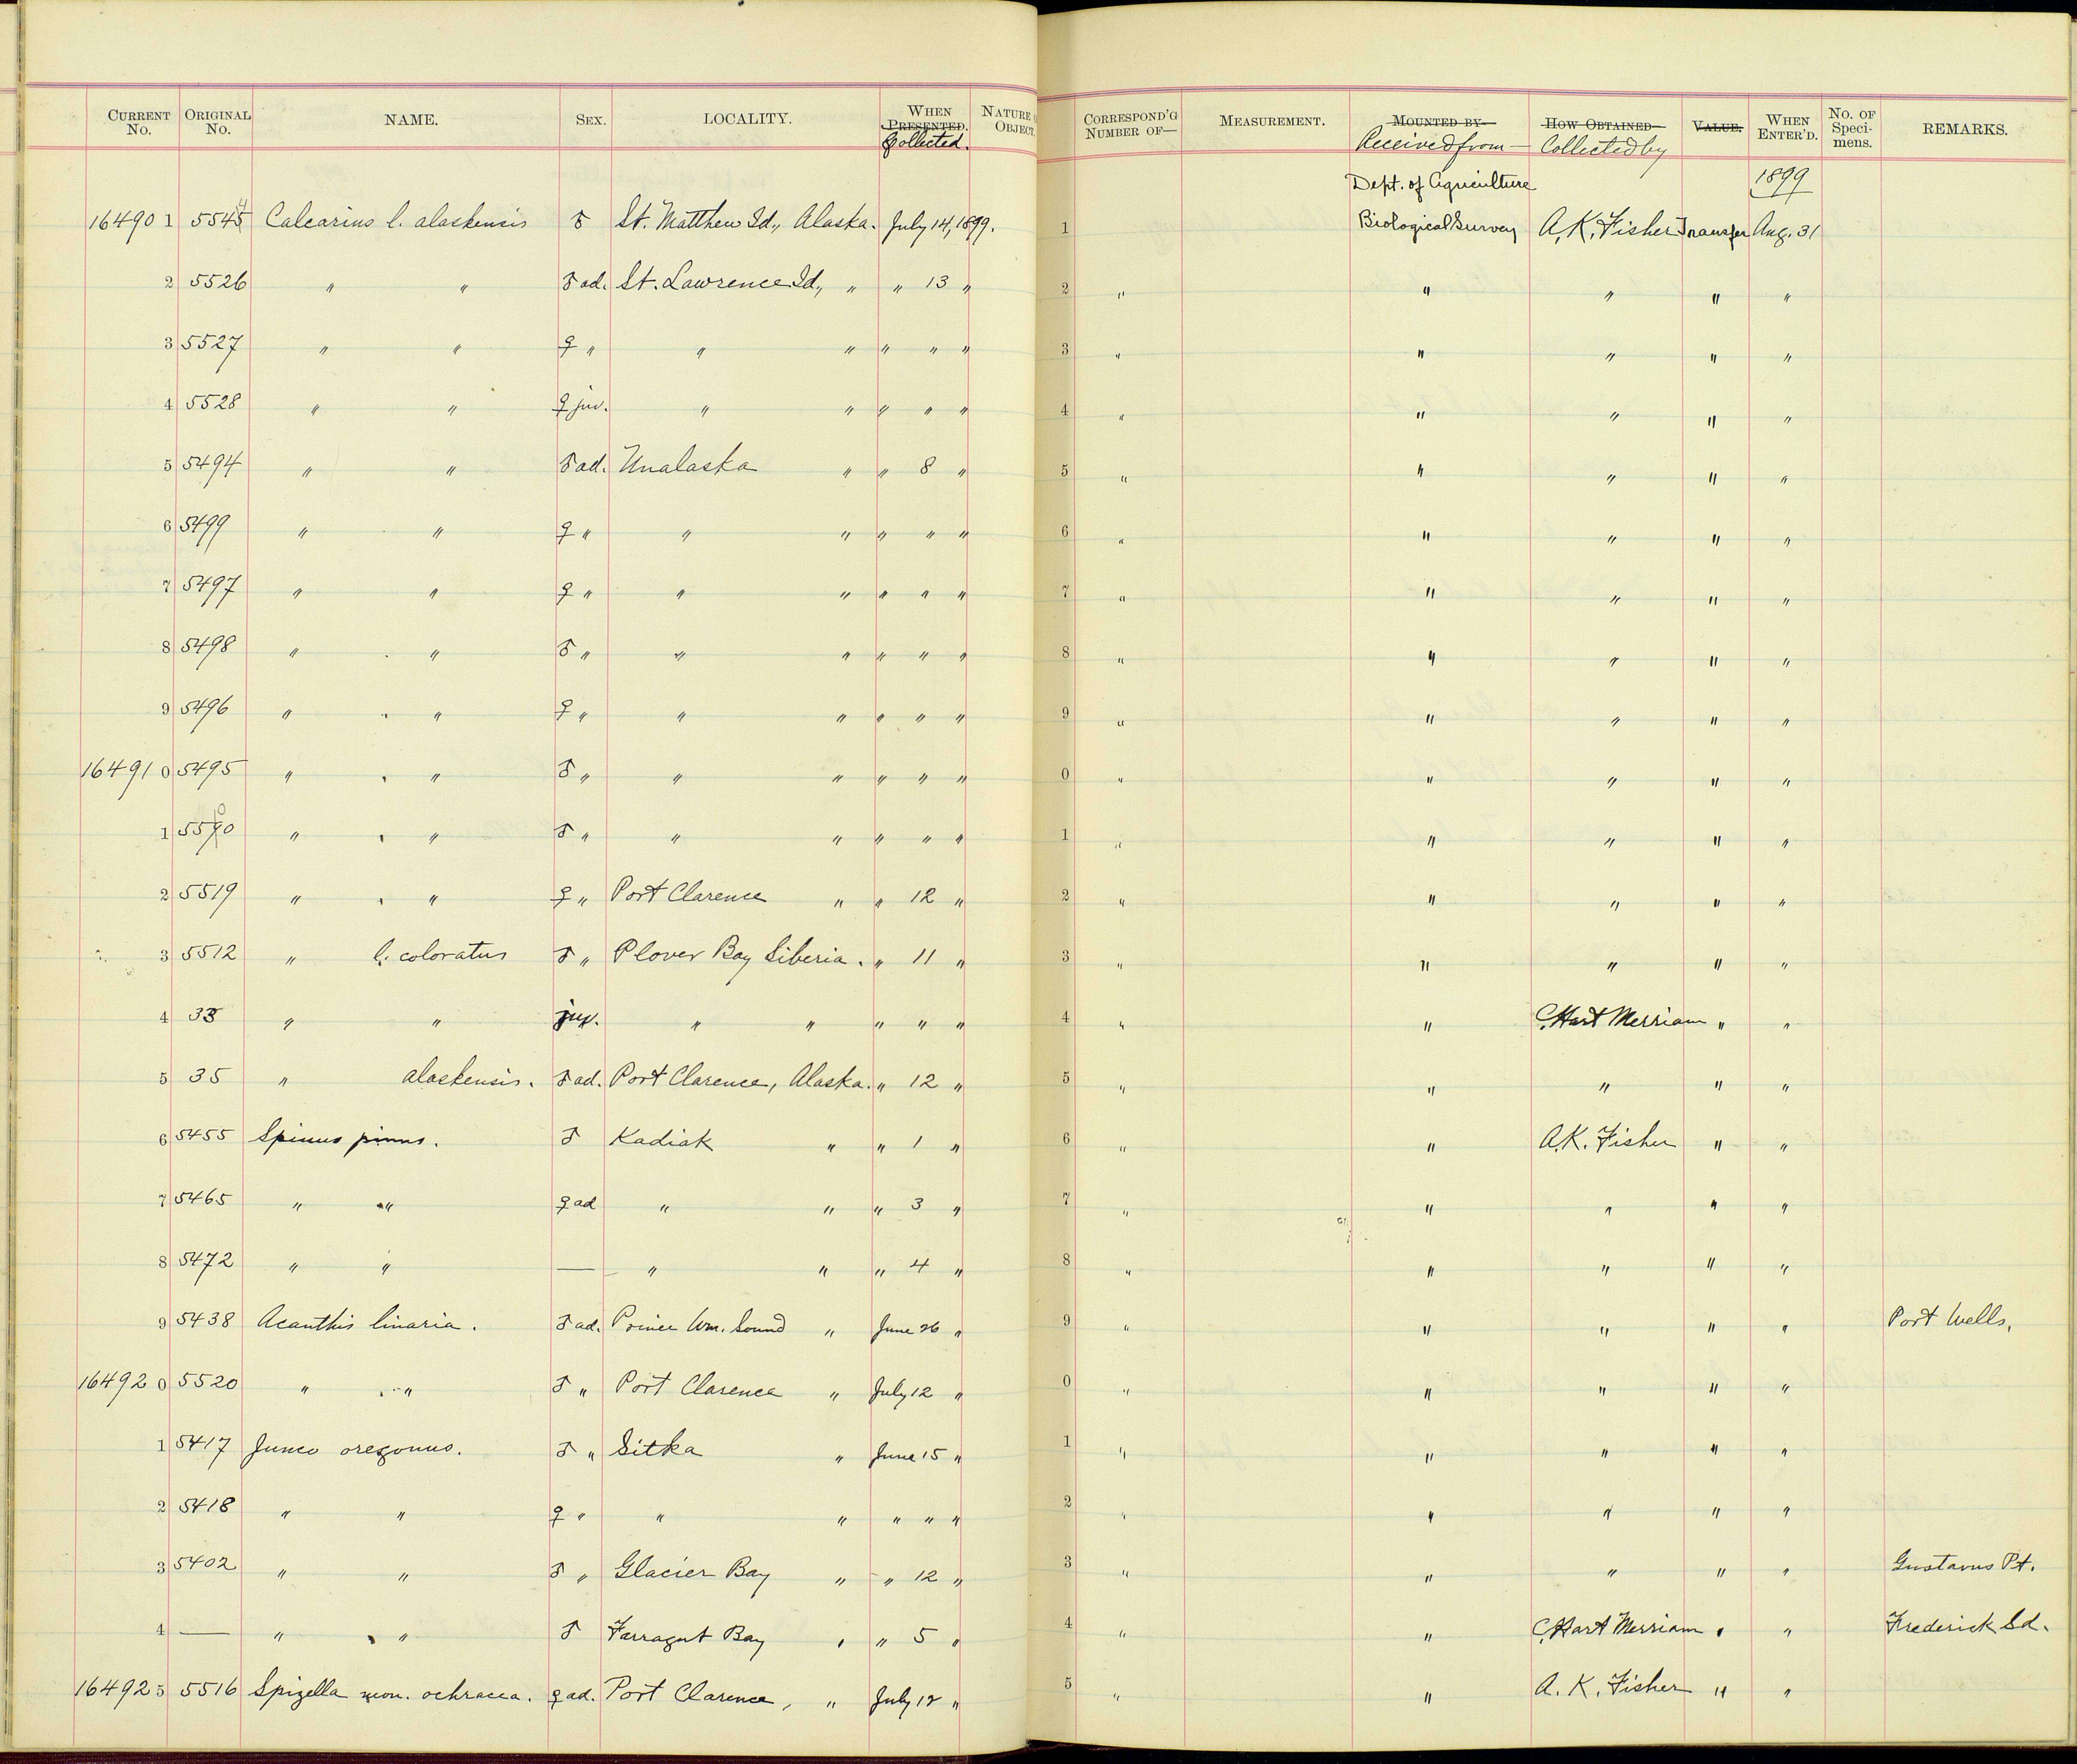 CURRENT No. ORIGINAL No. NAME. SEX. LOCALITY. WHEN PRESENTED. Collected. NATURE OBJECT. CORRESPOND'G NUMBER OF— MEASUREMENT. MOUNTED BY— Received from— HOW OBTAINED— Collected by VALUE. WHEN ENTER'D. No. OF Speci-mens. REMARKS.
Dept. of Agriculture 1899
16490 1 5545 Calcarius l. alaskensis ♂ St. Matthew Id., Alaska. July 14, 1899. 1 Biological Survey A.K. Fisher Transfer Aug. 31
2 5526 " " ♂ ad. St. Lawrence Id., " " 13 " 2 " " " " "
3 5527 " " ♀ " " " " " " 3 " " " " "
4 5528 " " ♀ juv. " " " " " 4 " " " " "
5 5494 " " ♂ ad. Unalaska " " 8 " 5 " " " " "
6 5499 " " ♀ " " " " " " 6 " " " " "
7 5497 " " ♀ " " " " " " 7 " " " " "
8 5498 " " ♂ " " " " " " 8 " " " " "
9 5496 " " ♀ " " " " " " 9 " " " " "
16491 0 5495 " " ♂ " " " " " " 0 " " " " "
1 " " ♂ " " " " " " 1 " " " " "
2 5519 " " ♀ " Port Clarence " " 12 " 2 " " " " "
3 5512 " l. coloratus ♂ " Plover Bay Siberia. " 11 " 3 " " " " "
4 33 " " juv. " " " " " 4 " " C. Hart Merriam " "
5 35 " alaskensis. ♂ ad. Port Clarence, Alaska. " 12 " 5 " " " " "
6 5455 Spinus pinus. ♂ Kadiak " " 1 " 6 " " A.K. Fisher " "
7 5465 " " ♀ ad " " " 3 " 7 " " " " "
8 5472 " " — " " " 4 " 8 " " " " "
9 5438 Acanthis linaria. ♂ ad. Prince Wm. Sound " June 26 " 9 " " " " " Port Wells,
16492 0 5520 " " ♂ " Port Clarence " July 12 " 0 " " " " "
1 5417 Junco oregonus. ♂ " Sitka " June 15 " 1 " " " " "
2 5418 " " ♀ " " " " " " 2 " " " " "
3 5402 " " ♂ " Glacier Bay " " 12 " 3 " " " " " Gustavus Pt.
4 — " " ♂ Farragut Bay " " 5 " 4 " " C. Hart Merriam " " Frederick Sd.
16492 5 5516 Spizella mon. ochracea. ♀ ad. Port Clarence, " July 12 " 5 " " A. K. Fisher " "